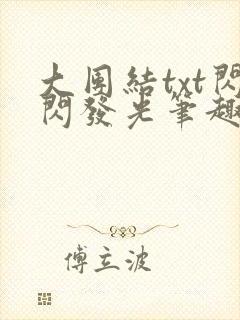 大團結txt閃
閃發光筆趣
傅立波